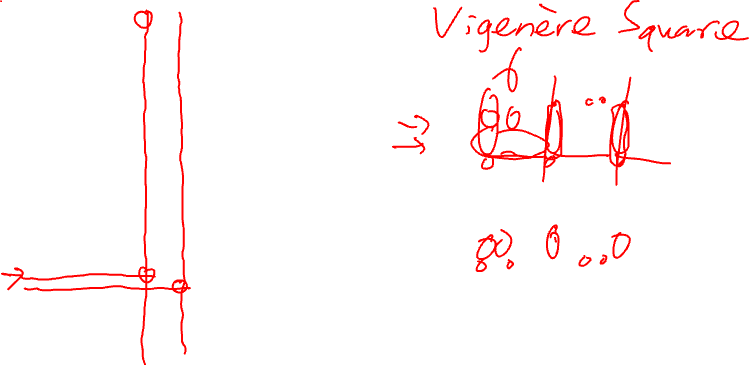 Vigenère Square